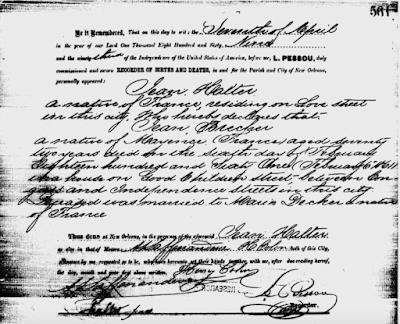 561
Be it Remembered, That on this day to wit: the Seventh of April
in the year of our Lord One Thousand Eight Hundred and Sixty
and the ninety of the Independence of the United States of America, before me, L. PESSOU, duly
commissioned and sworn RECORDER OF BIRTHS AND DEATHS, in and for the Parish and City of New Orleans,
personally appeared:
Jean Halter
a native of France, residing on Love street
in this city, Who hereby declares that,
Jean Brecher
a native of Mayence, France aged seventy
two years died on the sixth day of February
Eighteen hundred and
house on Good Children street between Con
gress and Independence streets in this city
Deceased was married to Maria Decker a native
of France
Thus done at New Orleans, in the presence of the aforesaid Jean Halter
as also in that of Messrs. both of this City,
witnesses by me requested so to be, who have hereunto set their hands together with me, after due reading hereof,
the day, month and year first above written.
Henry Bohn
L Pessou
Recorder